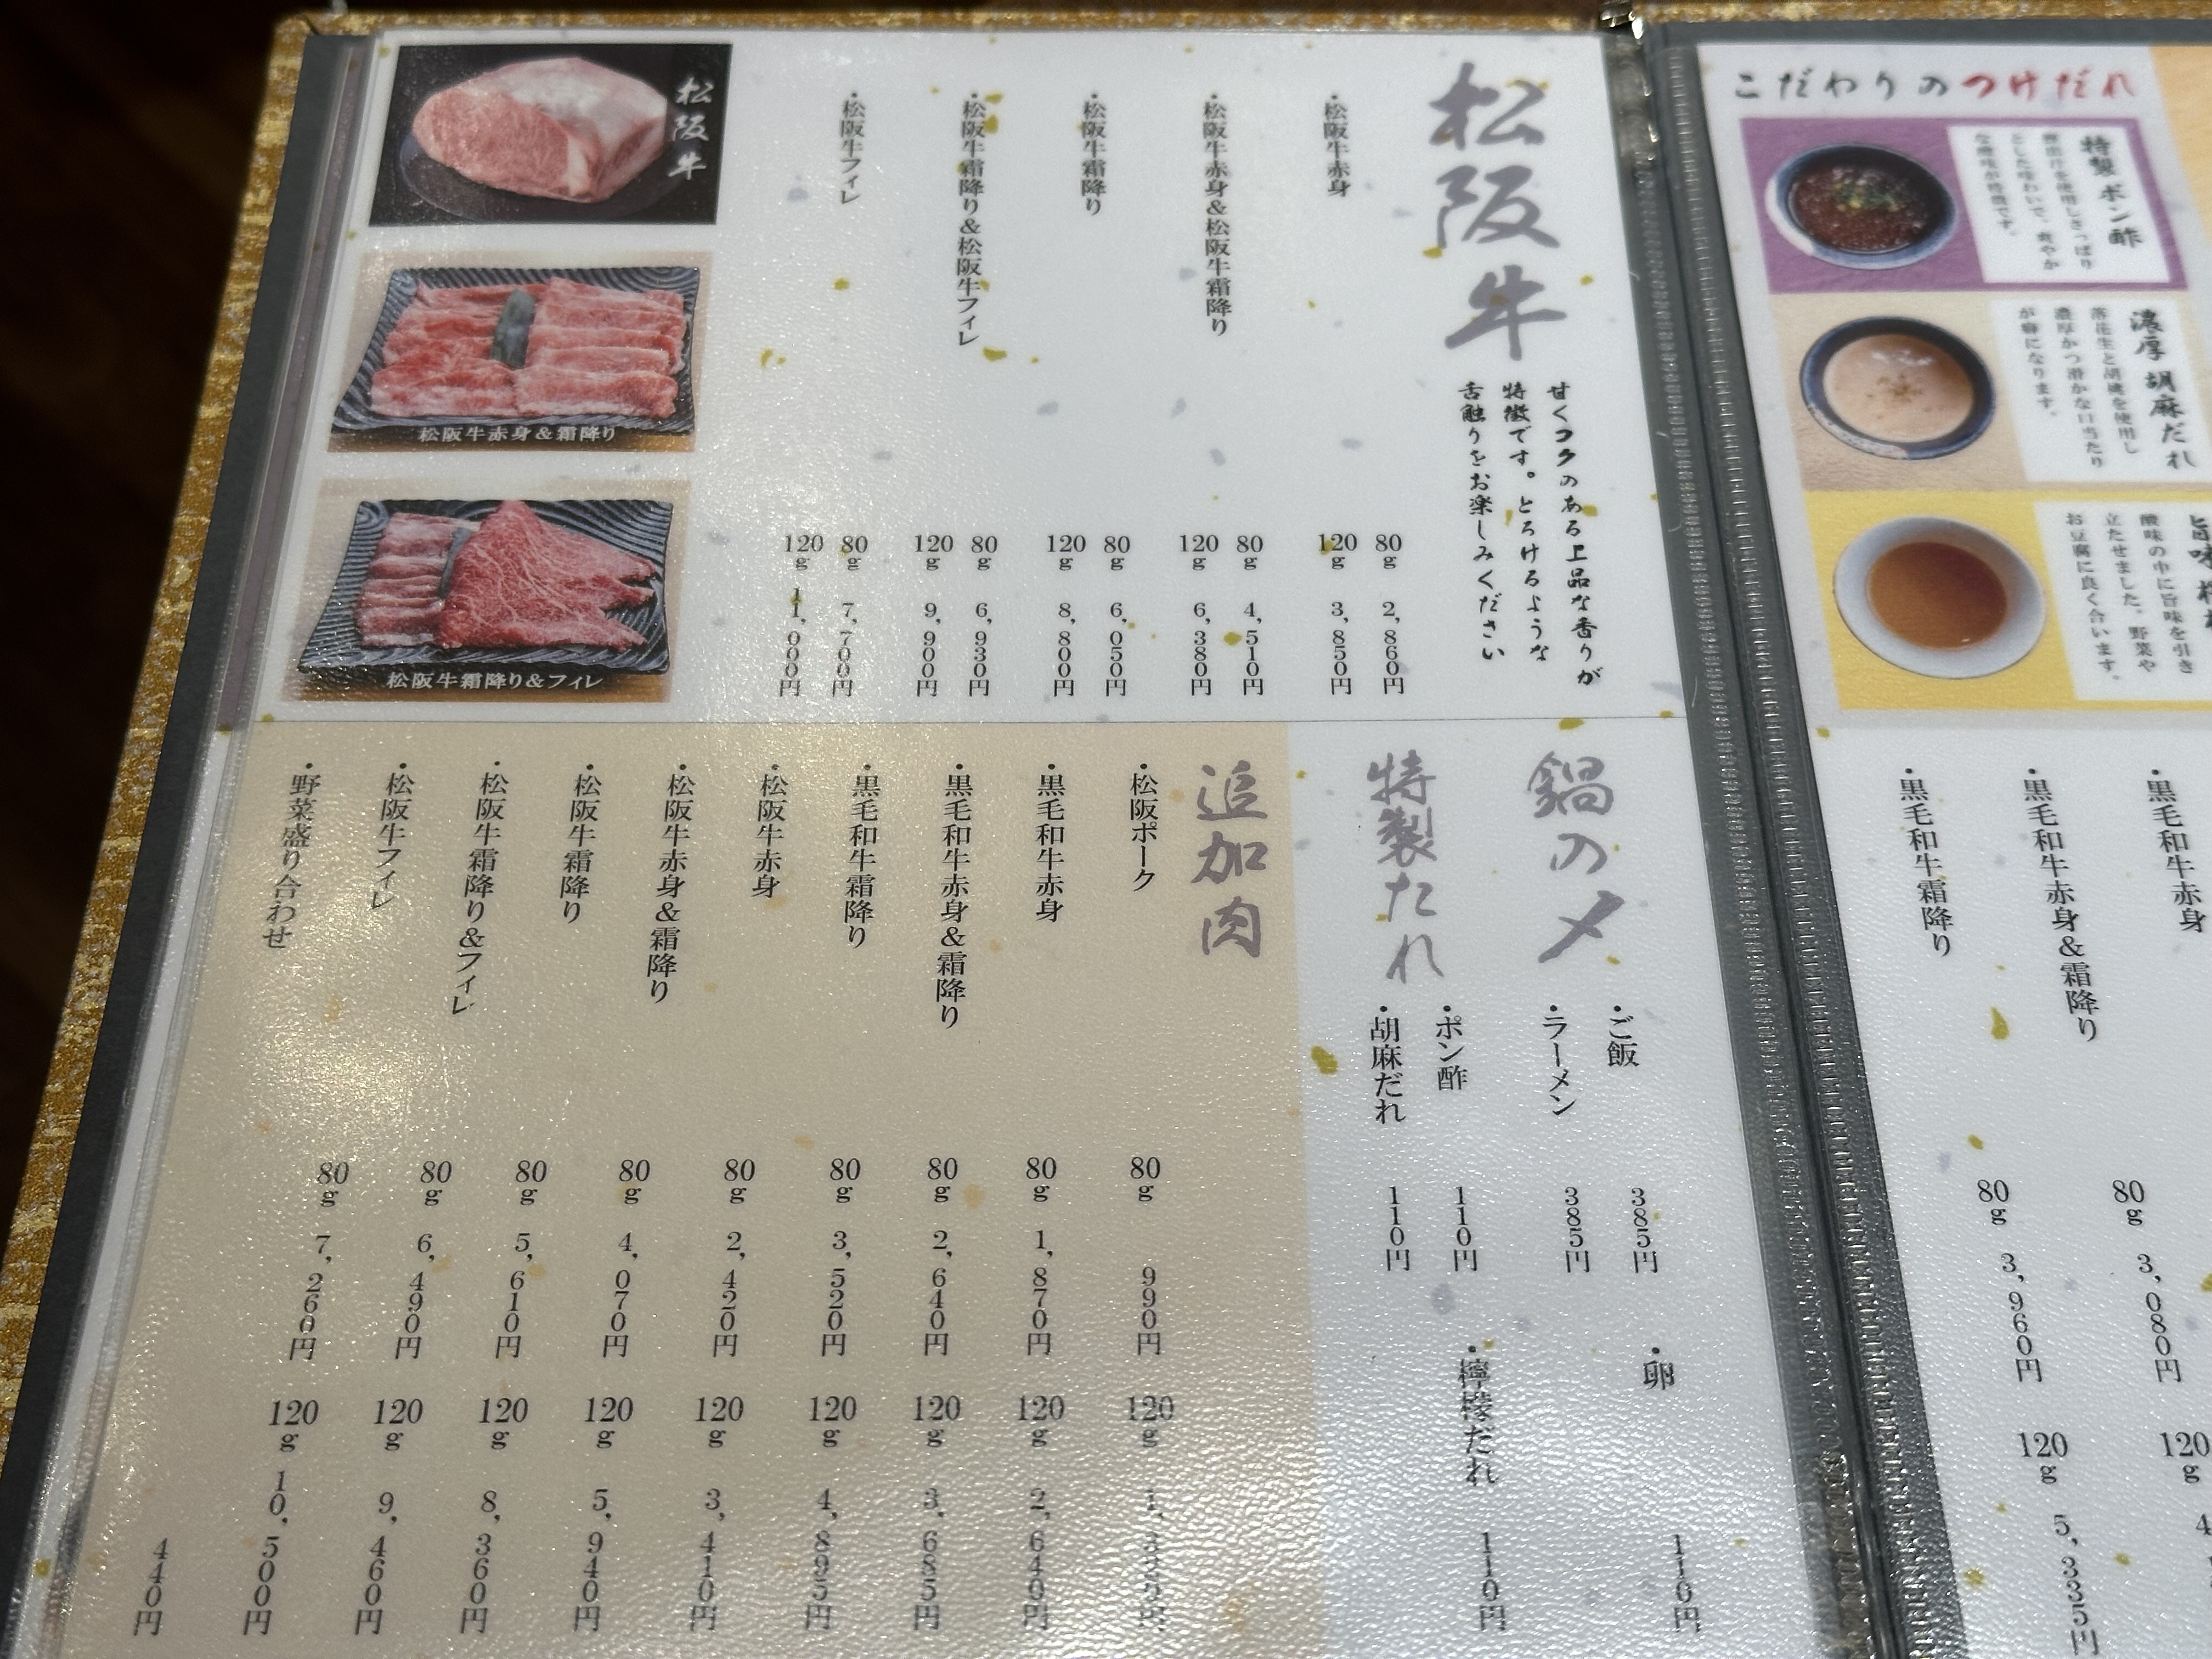 こだわりのつけだれ
特製ポン酢
とした味わいで、爽やか
な酸味が特徴です。
濃厚胡麻だれ
落花生と胡桃を使用し
濃厚かつ滑かな口当たり
が癖になります。
酸味の中に旨味を引き
立たせました。野菜や
お豆腐に良く合います。
・黒毛和牛赤身
・黒毛和牛赤身&霜降り
80g 3,080円
120g
・黒毛和牛霜降り
80g 3,960円
120g 5,335円
松阪牛
甘くコクのある上品な香りが
特徴です。とろけるような
舌触りをお楽しみください
・松阪牛赤身
80g 2,860円
120g 3,850円
・松阪牛赤身&松阪牛霜降り
80g 4,510円
120g 6,380円
・松阪牛霜降り
80g 6,050円
120g 8,800円
・松阪牛霜降り&松阪牛フィレ
80g 6,930円
120g 9,900円
・松阪牛フィレ
80g 7,700円
120g 11,000円
松阪牛
松阪牛赤身&霜降り
松阪牛霜降り&フィレ
鍋の〆
・ご飯 385円
・卵 110円
・ラーメン 385円
特製たれ
・ポン酢 110円
・檸檬だれ 110円
・胡麻だれ 110円
追加肉
・松阪ポーク 80g 990円 120g
・黒毛和牛赤身 80g 1,870円 120g 2,640円
・黒毛和牛赤身&霜降り 80g 2,640円 120g 3,685円
・黒毛和牛霜降り 80g 3,520円 120g 4,895円
・松阪牛赤身 80g 2,420円 120g 3,410円
・松阪牛赤身&霜降り 80g 4,070円 120g 5,940円
・松阪牛霜降り 80g 5,610円 120g 8,360円
・松阪牛霜降り&フィレ 80g 6,490円 120g 9,460円
・松阪牛フィレ 80g 7,260円 120g 10,500円
・野菜盛り合わせ 440円